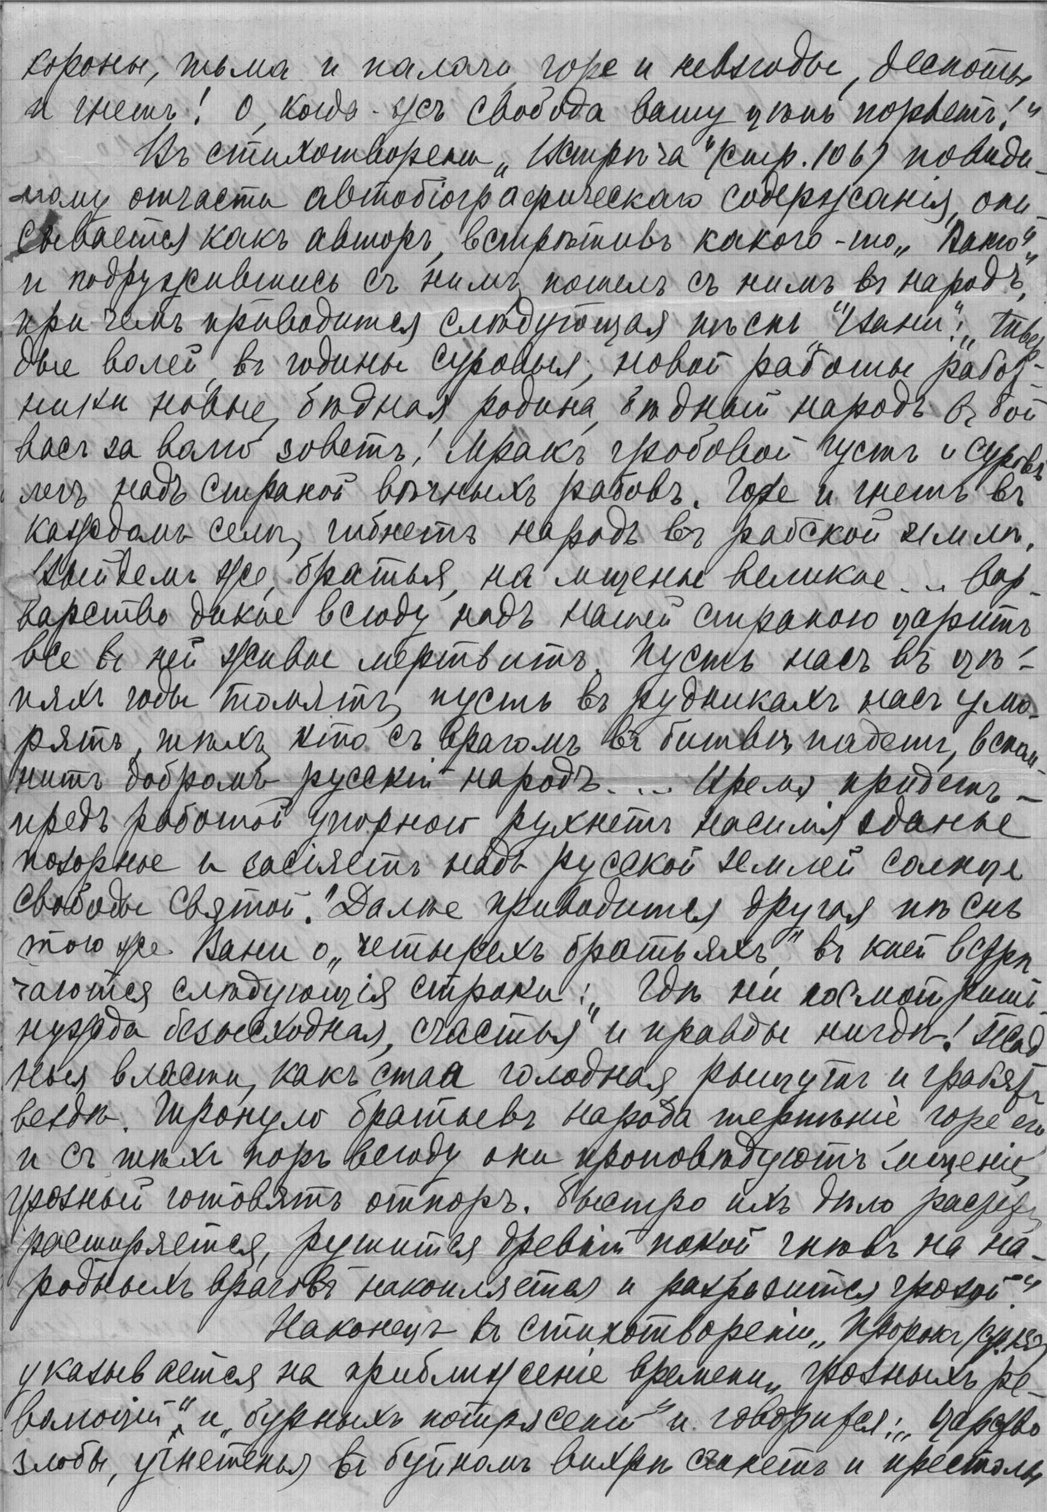 короны, тьма и палачи горе и невзгоды, деспоты
и гнетъ! О, когда-жъ свобода вашу цѣпь порветъ!"
Въ стихотвореніи „Встрѣча" (стр. 106) повиди-
мому отчасти автобіографическаго содержанія, опи-
сывается какъ авторъ, встрѣтивъ какого-то „Ваню"
и подружившись съ нимъ, пошелъ съ нимъ въ народъ,
при чемъ приводится слѣдующая пѣснь "Вани": „Твер-
дые волей въ годины суровыя, новой работы работ-
ники новые, бѣдная родина, бѣдный народъ въ бой
васъ за волю зоветъ! Мракъ гробовой густъ и суровъ
легъ надъ страной вѣчныхъ рабовъ. Горе и гнетъ въ
каждомъ селѣ, гибнетъ народъ въ рабской землѣ.
Выйдемъ же, братья, на мщенье великое... Вар-
варство дикое всюду надъ нашей страною царитъ
все въ ней живое мертвитъ. Пусть насъ въ цѣ-
пяхъ годы томятъ, пусть въ рудникахъ насъ умо-
рятъ, тѣхъ, кто съ врагомъ въ битвѣ падетъ, вспом-
нитъ добромъ русскій народъ.... Время придетъ -
предъ работой упорною рухнетъ насилія зданье
позорное и засіяетъ надъ русской землей солнце
свободы святой." Далѣе приводится другая пѣснь
того же Вани о „четырехъ братьяхъ" въ коей встрѣ-
чаются слѣдующія строки: „Гдѣ ни посмотришь-
нужда безысходная, счастья и правды нигдѣ! Жад
ныя власти, какъ стая голодная, рыщутъ и грабятъ
вездѣ. Тронуло братьевъ народа терпѣніе горе его
и съ тѣхъ поръ всюду они проповѣдуютъ мщеніе,
грозный готовятъ отпоръ. Быстро ихъ дѣло растетъ,
расширяется, рушится древній покой гнѣвъ на на-
родныхъ враговъ накопляется и разразится грозой."
Наконецъ въ стихотвореніи „Пророкъ"
указывается на приближеніе времени „грозныхъ ре-
волюцій" и „бурныхъ потрясеній" и говорится: „Царство
злобы, угнетенья въ буйномъ вихрѣ сгинетъ и престолы